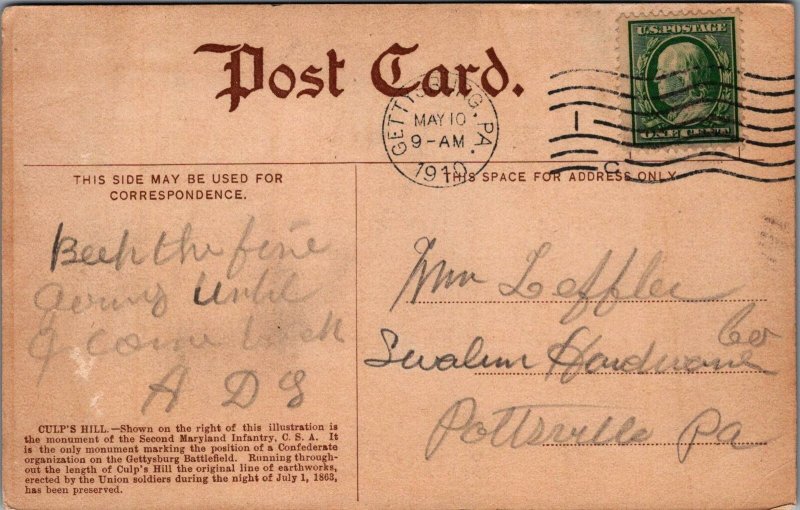 Post Card.
GETTYSBURG, PA.
MAY 10
9-AM
1910
U.S. POSTAGE
ONE CENT
THIS SIDE MAY BE USED FOR
CORRESPONDENCE.
THIS SPACE FOR ADDRESS ONLY
Keep the fire
going Until
I come back
A D G
Wm Leffler
Hardware Co
Pottsville Pa
CULP'S HILL.—Shown on the right of this illustration is
the monument of the Second Maryland Infantry, C. S. A. It
is the only monument marking the position of a Confederate
organization on the Gettysburg Battlefield. Running through-
out the length of Culp's Hill the original line of earthworks,
erected by the Union soldiers during the night of July 1, 1863,
has been preserved.